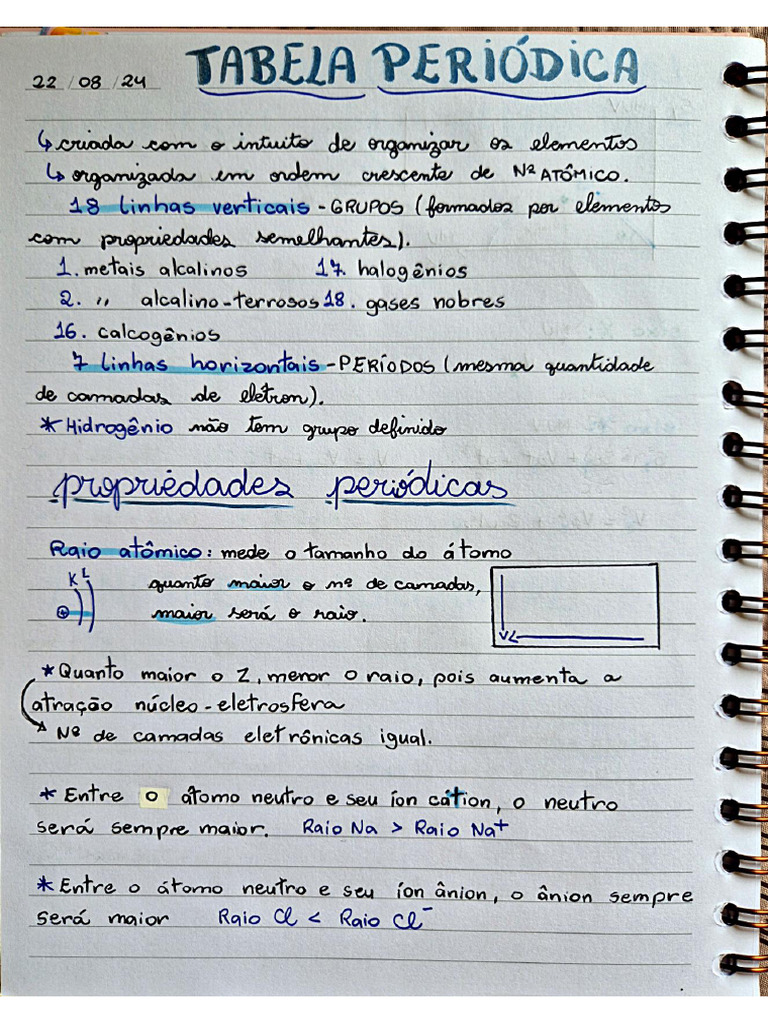 22 / 08 / 24 TABELA PERIÓDICA
↳ criada com o intuito de organizar os elementos
↳ organizada em ordem crescente de Nº ATÔMICO.
18 linhas verticais - GRUPOS (formados por elementos
com propriedades semelhantes).
1. metais alcalinos 17. halogênios
2. ,, alcalino-terrosos 18. gases nobres
16. calcogênios
7 linhas horizontais - PERÍODOS (mesma quantidade
de camadas de elétron).
* Hidrogênio não tem grupo definido
propriedades periódicas
Raio atômico: mede o tamanho do átomo
K L quanto maior o nº de camadas,
+ maior será o raio.
* Quanto maior o Z, menor o raio, pois aumenta a
atração núcleo-eletrosfera
→ Nº de camadas eletrônicas igual.
* Entre o átomo neutro e seu íon cátion, o neutro
será sempre maior. Raio Na > Raio Na⁺
* Entre o átomo neutro e seu íon ânion, o ânion sempre
será maior Raio Cl < Raio Cl⁻